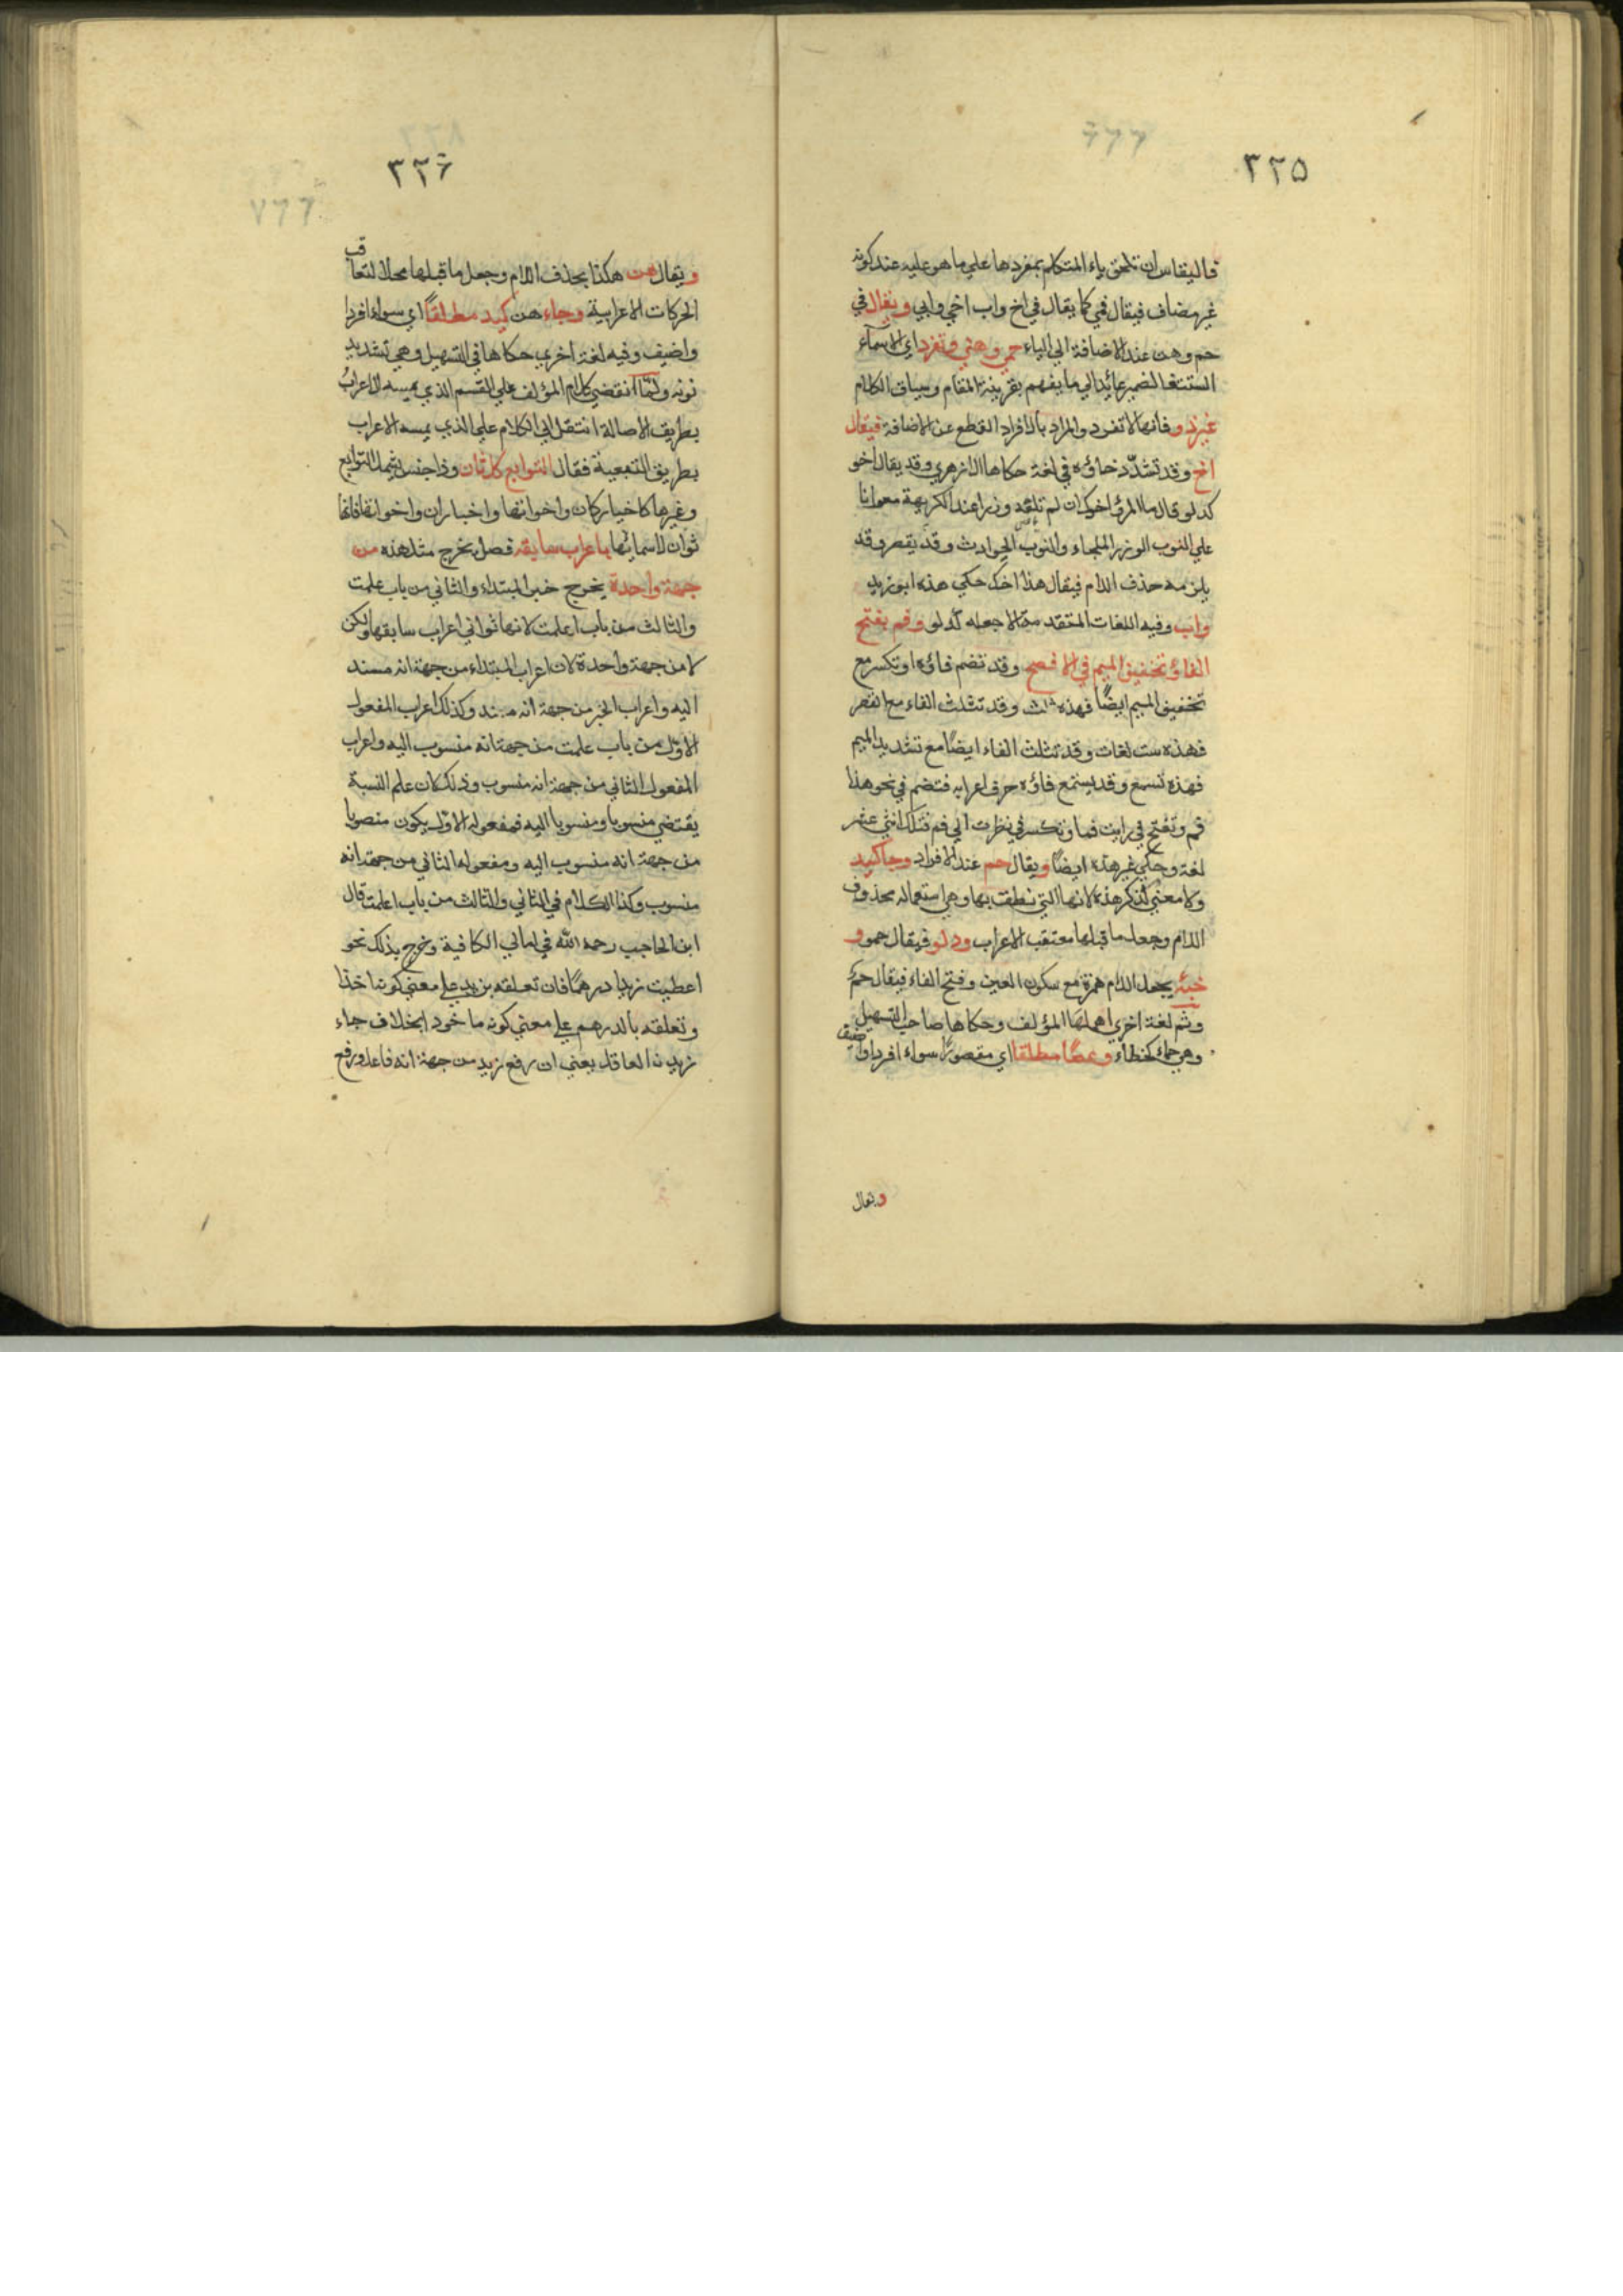 ٣٢٥
فالقياس ان تلحق ياء المتكلم بمفردها علي ما هو عليه عند كونه
غير مضاف فيقال في كما يقال في اخ واب اخي وابي ويقال في
حم وهن عند الاضافة الي الياء حمي وهني وتفرد اي الاسماء
الستة فالضمير عائد الي ما يفهم بقرينة المقام وسياق الكلام
غير ذو فانها لا تفرد والمراد بالافراد القطع عن الاضافة فيقال
اخ وقد تشدّد خاؤه في لغة حكاها الازهري وقد يقال اخو
كدلو قال ما المرؤ اخوك ان لم تلفه وزرا عند الكريهة معوانا
علي النوب الوزر الملجاء والنوب الحوادث وقد يقصر وقد
يلزمه حذف اللام فيقال هذا اخك حكي هذه ابو زيد
واب وفيه اللغات المتقدمة الا جعله كدلو وفم بفتح
الفاء وتخفيف الميم في الافصح وقد تضم فاؤه او تكسر مع
تخفيف الميم ايضًا فهذه ثلاث وقد تثلث الفاء مع القصر
فهذه ست لغات وقد تثلث الفاء ايضًا مع تشديد الميم
فهذه تسع وقد يستمع فاؤه حرف اعرابه فتضم في نحو هذا
فم وتفتح في رايت فما وتكسر في نظرت الي فم فتلك اثني عشر
لغة وحكي غير هذه ايضًا ويقال حم عند الافراد وجا كيد
ولا معني لذكر هذه لانها التي نطقت بها وهي استعماله محذوف
اللام وجعل ما قبلها معتقب الاعراب ودلو فيقال حمو و
خبئ بجعل اللام همزة مع سكون العين وفتح الفاء فيقال حمئ
وثم لغة اخري اهملها المؤلف وحكاها صاحب التسهيل
وهي حماء كخطاء وعصًا مطلقا اي مقصورًا سواء افرد او اضيف
ويقال
٣٢٦
ويقال هن هكذا بحذف اللام وجعل ما قبلها محلا لتعاقب
الحركات الاعرابية وجاء هن كيد مطلقًا اي سواء افرد
واضيف وفيه لغة اخري حكاها في التسهيل وهي تشديد
نونه ولمّا انقضي كلام المؤلف علي القسم الذي يمسه الاعراب
بطريق الاصالة انتقل الي الكلام علي الذي يمسه الاعراب
بطريق التبعية فقال التوابع كل ثان وذا جنس يشمل التوابع
وغيرها كاخبار كان واخواتها واخبار ان واخواتها فانها
ثوان لاسمائها باعراب سابقه فصل يخرج مثل هذه من
جهة واحدة يخرج خبر المبتداء والثاني من باب علمت
والثالث من باب اعلمت لانها ثواني اعراب سابقها ولكن
لا من جهة واحدة لان اعراب المبتداء من جهة انه مسند
اليه واعراب الخبر من جهة انه مسند وكذلك اعراب المفعول
الاوّل من باب علمت من جهة انه منسوب اليه واعراب
المفعول الثاني من جهة انه منسوب وذلك لان علم النسبة
يقتضي منسوبا ومنسوبا اليه فمفعوله الاوّل يكون منصوبا
من جهة انه منسوب اليه ومفعوله الثاني من جهة انه
منسوب وكذا الكلام في الثاني والثالث من باب اعلمت قال
ابن الحاجب رحمه الله في امالي الكافية وخرج بذلك نحو
اعطيت زيدا درهمًا فان تعلقه بزيد علي معني كونه اخذا
وتعلقه بالدرهم علي معني كونه ماخودا بخلاف جاء
زيد العاقل يعني ان رفع زيد من جهة انه فاعل ورفع